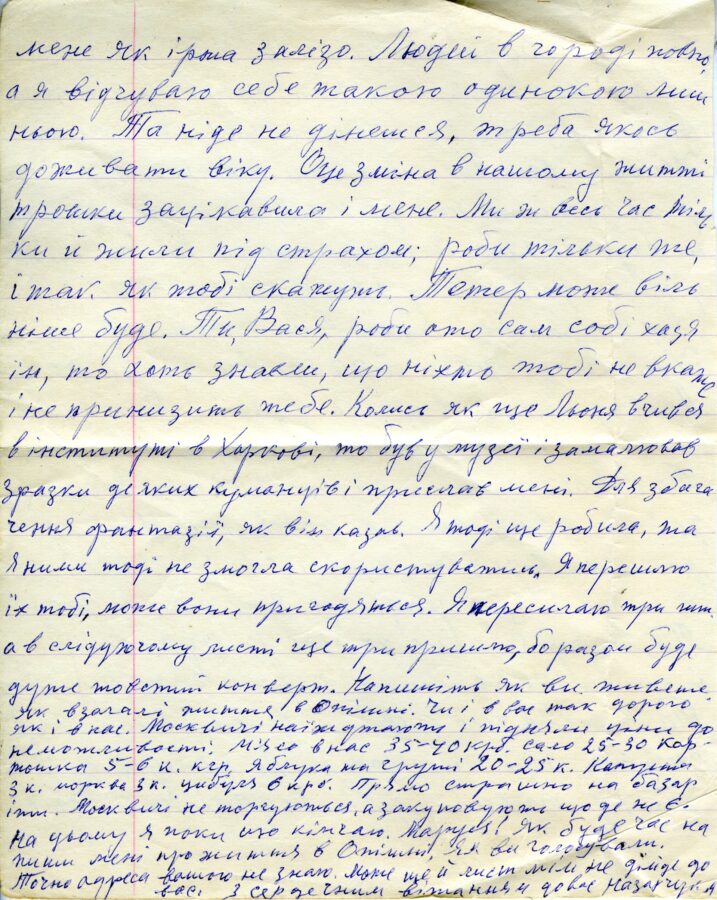 мене як іржа залізо. Людей в городі повно,
а я відчуваю себе такою одинокою лиш
ньою. Та ніде не дінешся, треба якось
доживати віку. Оце зміна в нашому житті
трошки зацікавила і мене. Ми ж весь час тіль
ки й жили під страхом; роби тільки те,
і так як тобі скажуть. Тепер може віль
ніше буде. Ти, Вася, роби ото сам собі хазя
їн, то хоть знаєш, що ніхто тобі не вкаже
і не принизить тебе. Колись як ще Льоня вчився
в інституті в Харкові, то був у музеї і замалював
зразки деяких куманців і прислав мені. Для збага
чення фантазії, як він казав. Я тоді ще робила, та
я ними тоді не змогла скористуватись. Я перешлю
їх тобі, може вони пригодяться. Я пересилаю три шт.
а в слідуючому листі ще три пришлю, бо разом буде
дуже товстий конверт. Напишіть як ви живете
як взагалі життя в Опішні. Чи і в вас так дорого
як і в нас. Москвичі наїжджають і підняли ціни до
неможливості. Мясо в нас 35-40 крб. сало 25-30 Кар
тошка 5-6 к. кгр. Яблука та груші 20-25 к. Капуста
3 к. морква 3 к. цибуля 6 крб. Прямо страшно на базар
іти. Москвичі не торгуються, а закуповують що де не є.
На цьому я поки що кінчаю. Маруся! Як буде час на
пиши мені про життя в Опішні, як ви голосували.
Точно адреса вашого не знаю. Може ще й лист мій не дійде до
вас. З сердечним вітанням до вас Назарчук А